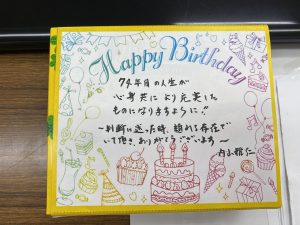 Happy Birthday
74年目の人生が
心身共により充実した
ものになりますように!!
〜判断に迷った時、頼れる存在で
いて頂き、ありがとうございます〜